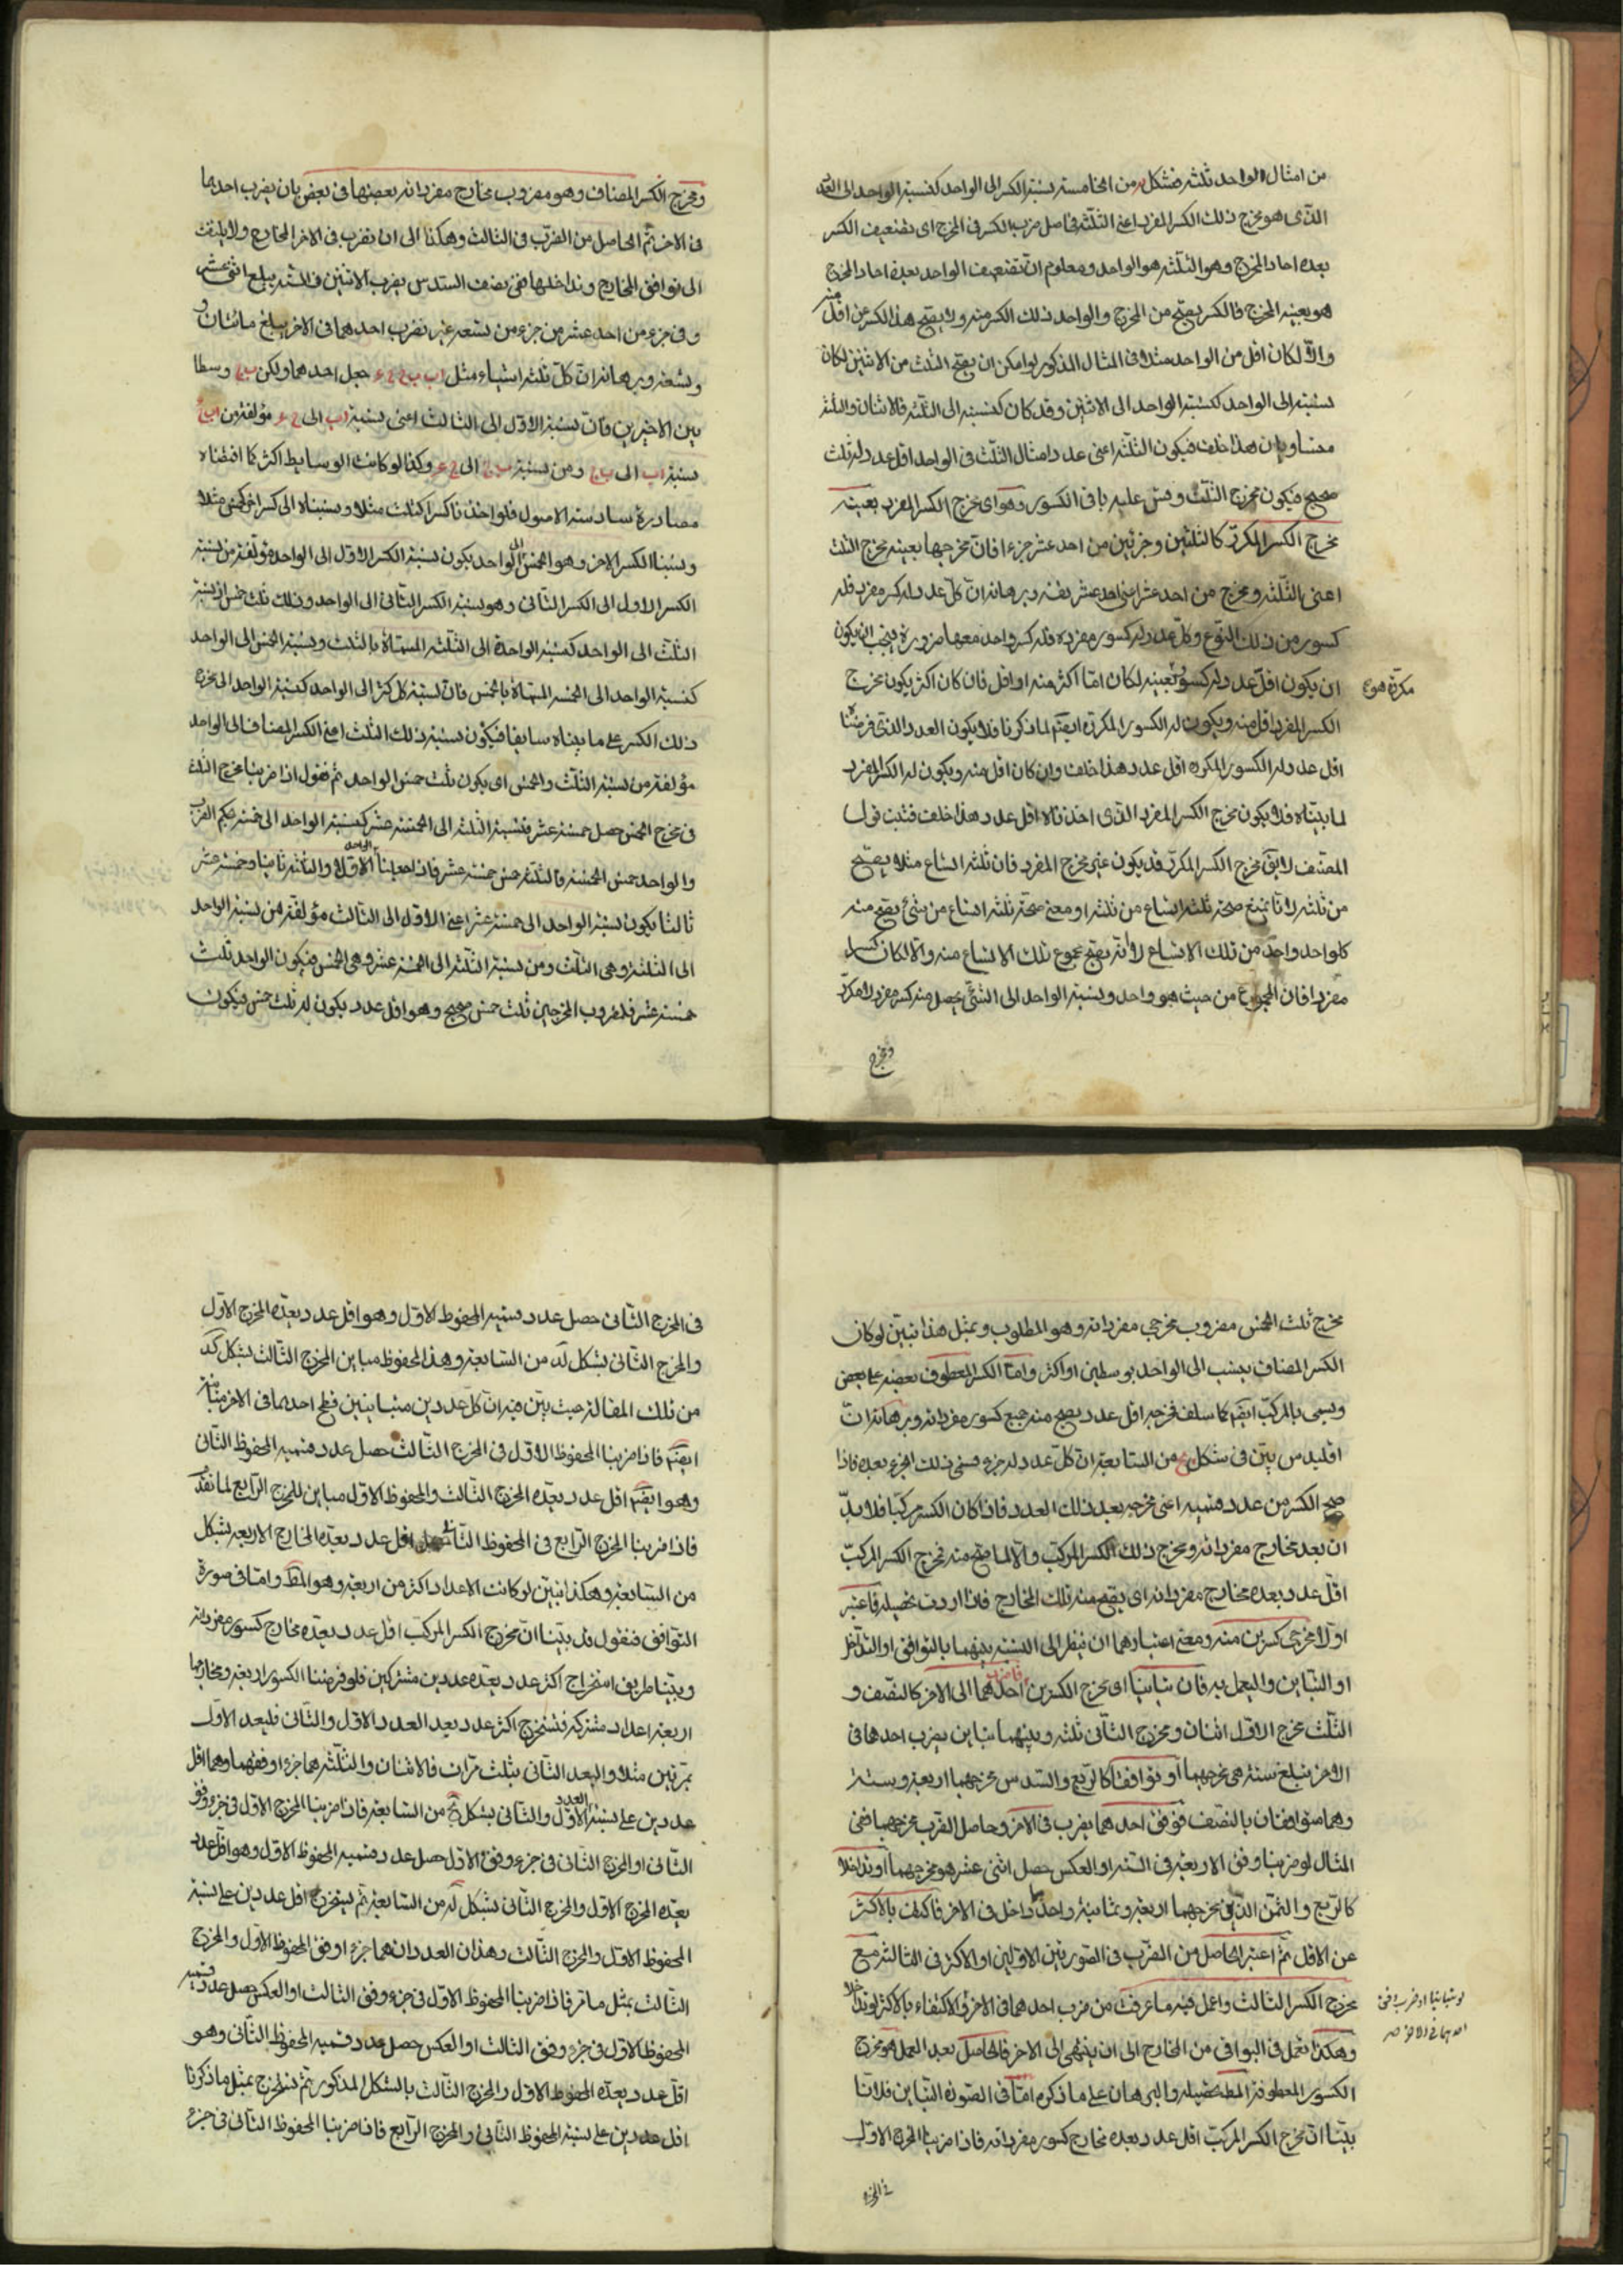 من امثال الواحد ثلثة فبشكل من الخامسة نسبة الكسر الى الواحد كنسبة الواحد الى العدد
الذى هو مخرج ذلك الكسر المفرد اعنى الثلثة فحاصل ضرب الكسر فى المخرج اى تضعيف الكسر
بعدة احاد المخرج وهو الثلثة هو الواحد ومعلوم ان تضعيف الواحد بعدة احاد المخرج
هو بعينه المخرج فالكسر يصح من المخرج والواحد ذلك الكسر منه ولا يصح هذا الكسر عن اقل منه
والا لكان اقل من الواحد مثلا فى المثال المذكور لو امكن ان يصح الثلث من الاثنين لكان
نسبته الى الواحد كنسبة الواحد الى الاثنين وقد كان كنسبته الى الثلثة فالاثنان والثلثة
متساويان هذا خلف فيكون الثلثة اعنى عدد امثال الثلث فى الواحد اقل عدد له ثلث
صحيح فيكون مخرج الثلث وقس عليه باقى الكسور وهو اى مخرج الكسر المفرد بعينه
مخرج الكسر المكرر كالثلثين وجزئين من احد عشر جزءا فان مخرجها بعينه مخرج الثلث
اعنى الثلثة ومخرج من احد عشر اعنى احد عشر نفسه وبرهانه ان كل عدد له كسر مفرد فله
كسور من ذلك النوع وكل عدد له كسور مفردة فله كسر واحد معها ضرورة فيجب ان يكون
ان يكون اقل عدد وله كسور بعينه لكان اما اكثر منه او اقل فان كان اكثر يكون مخرج
مكررة هو
الكسر المفرد اقل منه ويكون له الكسور المكررة ايضا لما ذكرنا فلا يكون العدد الذى فرضنا
اقل عدد له الكسور المكررة اقل عدد هذا خلف وان كان اقل منه ويكون له الكسر المفرد
لما بيناه فلا يكون مخرج الكسر المفرد الذى اخذناه اقل عدد هذا خلف فثبت قول
المصنف لايق مخرج الكسر المكرر قد يكون غير مخرج المفرد فان ثلثة اتساع مثلا يصح
من ثلثة لانا نمنع صحة ثلثة اتساع من ثلثة او معنى صحة ثلثة اتساع من شئ يصح منه
كل واحد واحد من تلك الاتساع لا انه يصح مجموع تلك الاتساع منه والا لكان كسرا
مفردا فان المجموع من حيث هو واحد ونسبة الواحد الى الشئ يحصل منه كسر مفرد لا مكرر
ومخرج
ومخرج الكسر المضاف وهو مضروب مخارج مفرداته بعضها فى بعض بان يضرب احدها
فى الاخر ثم الحاصل من الضرب فى الثالث وهكذا الى ان يضرب فى الاخر المخارج ولا يلتفت
الى توافق المخارج وتداخلها ففى نصف السدس يضرب الاثنين فى الستة يبلغ اثنى عشر
وفى جزء من احد عشر من جزء من تسعة عشر نضرب احدهما فى الاخر يبلغ مائتان و
وتسعة وبرهانه ان كل ثلثة اشياء مثل اب ب ج ج ء جعل احدهما وليكن ب ج وسطا
بين الاخيرين فان نسبة الاول الى الثالث اعنى نسبة اب الى ج ء مؤلفة من
نسبة اب الى ب ج ومن نسبة ب ج الى ج ء وكذا لو كانت الوسايط اكثر كما اقتضاه
مصادرة سادسة الاصول فلو اخذنا كسرا كثلث مثلا ونسبناه الى كسر اخر كخمس مثلا
ونسبنا الكسر الاخر وهو الخمس الى الواحد يكون نسبة الكسر الاول الى الواحد مؤلفة من نسبة
الكسر الاول الى الكسر الثانى وهو نسبة الكسر الثانى الى الواحد وذلك ثلث خمس اذ نسبة
الثلث الى الواحد كنسبة الواحدة الى الثلثة المسماة بالثلث ونسبة الخمس الى الواحد
كنسبة الواحد الى الخمسة المسماة بالخمس فان نسبة كل كسر الى الواحد كنسبة الواحد الى مخرج
ذلك الكسر على ما بيناه سابقا فيكون نسبة ذلك الثلث اعنى الكسر المضاف الى الواحد
مؤلفة من نسبة الثلث والخمس اى يكون ثلث خمس الواحد ثم نقول اذا ضربنا مخرج الثلث
فى مخرج الخمس حصل خمسة عشر فنسبة الثلثة الى الخمسة عشر كنسبة الواحد الى خمسة بحكم الضرب
والواحد خمس الخمسة فالثلثة خمس خمسة عشر فاذا جعلنا الواحد الاول والثلثة ثانيا وخمسة عشر
ثالثا يكون نسبة الواحد الى خمسة عشر اعنى الاول الى الثالث مؤلفة من نسبة الواحد
الى الثلثة وهى الثلث ومن نسبة الثلثة الى الخمسة عشر وهى الخمس فيكون الواحد ثلث
خمسة عشر فلمضروب المخرجين ثلث خمس صحيح وهو اقل عدد يكون له ثلث خمس فيكون
مخرج ثلث الخمس مضروب مخرجى مفرداته وهو المطلوب وبمثل هذا نبين لو كان
الكسر المضاف ينسب الى الواحد بوسطين او اكثر واما الكسر المعطوف بعضه على بعض
ويسمى بالمركب ايضا كما سلف فمخرجه اقل عدد يصح منه جميع كسور مفرداته وبرهانه ان
اقليدس بين فى شكل من السابعة ان كل عدد له جزء فسمى ذلك الجزء يعده فاذا
صح الكسر من عدد فسميه اعنى مخرجه يعد ذلك العدد فاذا كان الكسر مركبا فلا بد
ان يعد مخارج مفرداته ومخرج ذلك الكسر المركب والا لما صح منه فمخرج الكسر المركب
اقل عدد يعده مخارج مفرداته اى يصح منه تلك المخارج فاذا اردت تحصيله فاعتبر
اولا مخرجى كسرين منه ومعنى اعتبارهما ان ينظر الى النسبة بينهما بالتوافق او التداخل
او التباين والعمل به فان تباينا اى مخرج الكسرين فاضرب احدهما الى الاخر كالنصف و
الثلث مخرج الاول اثنان ومخرج الثانى ثلثة وبينهما تباين يضرب احدهما فى
الاخر فتبلغ ستة هى مخرجهما او توافقا كالربع والسدس مخرجهما اربعة وستة
وهما متوافقان بالنصف فوفق احدهما يضرب فى الاخر وحاصل الضرب مخرجهما ففى
المثال لو ضربنا وفق الاربعة فى الستة او العكس حصل اثنى عشر هو مخرجهما او تداخلا
كالربع والثمن الذين مخرجهما اربعة وثمانية واحدهما داخل فى الاخر فاكتف بالاكثر
عن الاقل ثم اعتبر الحاصل من الضرب فى الصورتين الاوليين او الاكثر فى الثالثة مع
مخرج الكسر الثالث واعمل فيه ما عرفت من ضرب احدهما فى الاخر او الاكتفاء بالاكثر لو تداخلا
لو تباينا او ضرب وفق
احدهما فى الاخر صح
وهكذا تعمل فى البواقى من المخارج الى ان ينتهى الى الاخر فالحاصل بعد العمل هو مخرج
الكسور المعطوفة المط تحصيله والبرهان على ما ذكره اما فى الصورة التباين فلانا
بينا ان مخرج الكسر المركب اقل عدد يعده مخارج كسور مفرداته فاذا ضربنا المخرج الاول
فى المخرج
فى المخرج الثانى حصل عدد فسميه المحفوظ الاول وهو اقل عدد يعده المخرج الاول
والمخرج الثانى بشكل لد من السابعة وهذا المحفوظ مباين المخرج الثالث بشكل كد
من تلك المقالة حيث بين فيه ان كل عددين متباينين فسطح احدهما فى الاخر مباينه
ايضا فاذا ضربنا المحفوظ الاول فى المخرج الثالث حصل عدد فنسميه المحفوظ الثانى
وهو ايضا اقل عدد يعده المخرج الثالث والمحفوظ الاول مباين للمخرج الرابع لما تقدم
فاذا ضربنا المخرج الرابع فى المحفوظ الثانى حصل اقل عدد يعده المخارج الاربعة بشكل
من السابعة وهكذا نبين لو كانت الاعداد اكثر من اربعة وهو المط واما فى صورة
التوافق فنقول قد بينا ان مخرج الكسر المركب اقل عدد يعده مخارج كسور مفرداته
وبينا طريق استخراج اكثر عدد يعده عددين مشتركين فلو فرضنا الكسور اربعة ومخارجها
اربعة اعداد مشتركة فنستخرج اكثر عدد يعد العدد الاول والثانى فليعد الاول
بمرتين مثلا والبعد الثانى بثلث مرات فالاثنان والثلثة هما جزءا وفقهما وهما اقل
عددين على نسبة العدد الاول والثانى بشكل لج من السابعة فاذا ضربنا المخرج الاول فى جزء وفق
الثانى او المخرج الثانى فى جزء وفق الاول حصل عدد فنسميه المحفوظ الاول وهو اقل عدد
يعده المخرج الاول والمخرج الثانى بشكل لد من السابعة ثم يستخرج اقل عددين على نسبة
المحفوظ الاول والمخرج الثالث وهذان العددان هما جزءا وفق المحفوظ الاول والمخرج
الثالث بمثل ما مر فاذا ضربنا المحفوظ الاول فى جزء وفق الثالث او العكس حصل عدد فنسميه
المحفوظ الاول فى جزء وفق الثالث او العكس حصل عدد فنسميه المحفوظ الثانى وهو
اقل عدد يعده المحفوظ الاول والمخرج الثالث بالشكل المذكور ثم نستخرج بمثل ما ذكرنا
اقل عددين على نسبة المحفوظ الثانى والمخرج الرابع فاذا ضربنا المحفوظ الثانى فى جزء